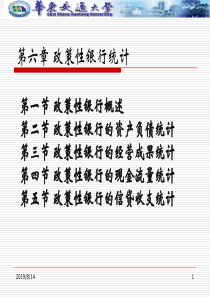 華東交通大学
East China Jiaotong University
第六章 政策性银行统计
第一节 政策性银行概述
第二节 政策性银行的资产负债统计
第三节 政策性银行的经营成果统计
第四节 政策性银行的现金流量统计
第五节 政策性银行的信贷收支统计
2019/8/14
1